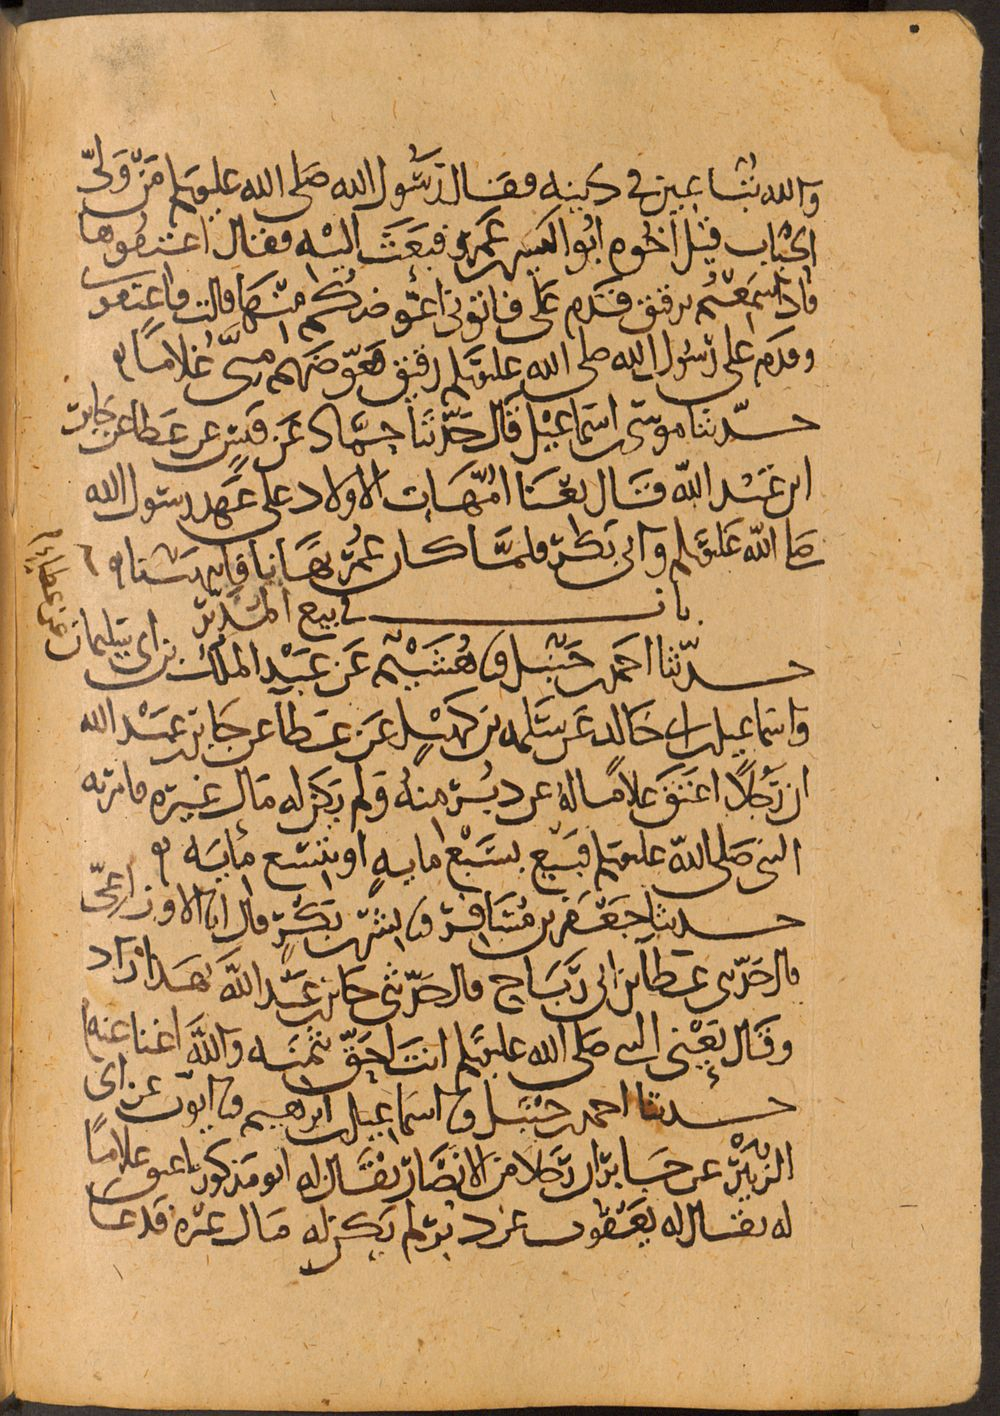 والله تباعين في دينه فقال رسول الله صلى الله عليه وسلم من ولي
الحباب قيل اخوه ابو اليسر بن عمرو فبعث اليه فقال اعتقوها
فاذا سمعتم برقيق قدم علي فاتوني اعوضكم منها قالت فاعتقوني
وقدم على رسول الله صلى الله عليه وسلم رقيق فعوضهم مني غلاما
حدثنا موسى بن اسماعيل قال حدثنا حماد عن قيس عن عطا عن جابر
ابن عبد الله قال بعنا امهات الاولاد على عهد رسول الله
صلى الله عليه وسلم وابي بكر فلما كان عمر نهانا فانتهينا
باب في بيع المدبر
حدثنا احمد بن حنبل نا هشيم عن عبد الملك بن ابي سليمان
عن عطاء
واسماعيل بن ابي خالد عن سلمه بن كهيل عن عطا عن جابر بن عبد الله
ان رجلا اعتق غلاما له عن دبر منه ولم يكن له مال غيره فامر به
النبي صلى الله عليه وسلم فبيع بسبع مايه او بتسع مايه
حدثنا جعفر بن مسافر نا بشر بن بكر قال انا الاوزاعي
قال حدثني عطا بن ابي رباح قال حدثني جابر بن عبد الله بهذا زاد
وقال يعني النبي صلى الله عليه وسلم انت احق بثمنه والله اغنا عنه
حدثنا احمد بن حنبل نا اسماعيل بن ابراهيم نا ايوب عن ابي
الزبير عن جابر ان رجلا من الانصار يقال له ابو مذكور اعتق غلاما
له يقال له يعقوب عن دبر لم يكن له مال غيره فدعا